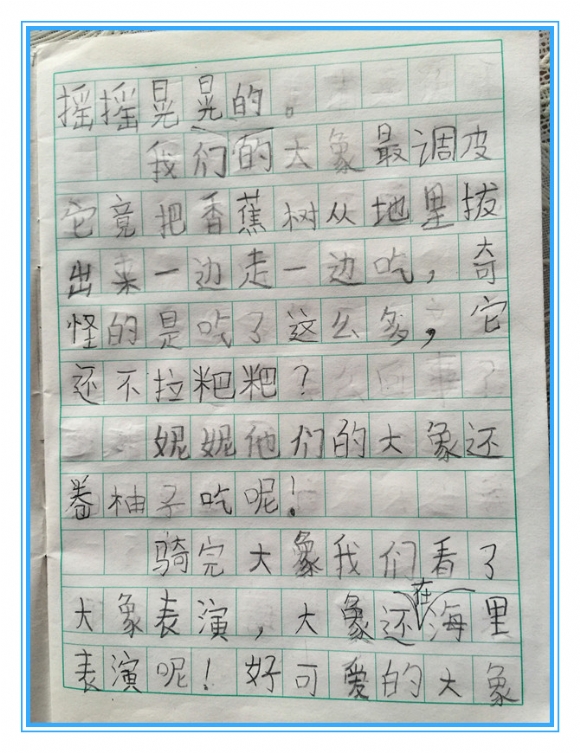 摇摇晃晃的。
我们的大象最调皮
它竟把香蕉树从地里拔
出来一边走一边吃，奇
怪的是吃了这么多，它
还不拉粑粑？
妮妮他们的大象还
卷柚子吃呢！
骑完大象我们看了
大象表演，大象还在海里
表演呢！好可爱的大象